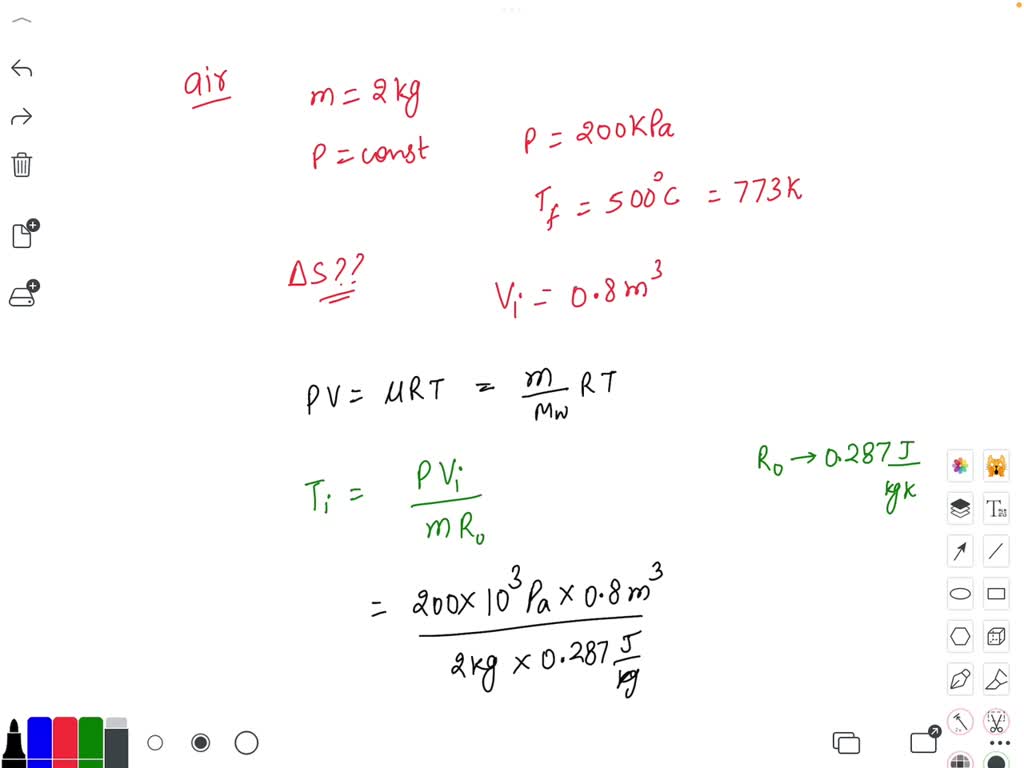 air
m = 2kg
P = const
P = 200KPa
T_f = 500°C = 773K
ΔS??
V_i = 0.8m³
PV = μRT = m/Mw RT
R₀ → 0.287 J/kgK
T_i = PV_i/mR₀
= 200×10³Pa × 0.8m³ / 2kg × 0.287 J/kg